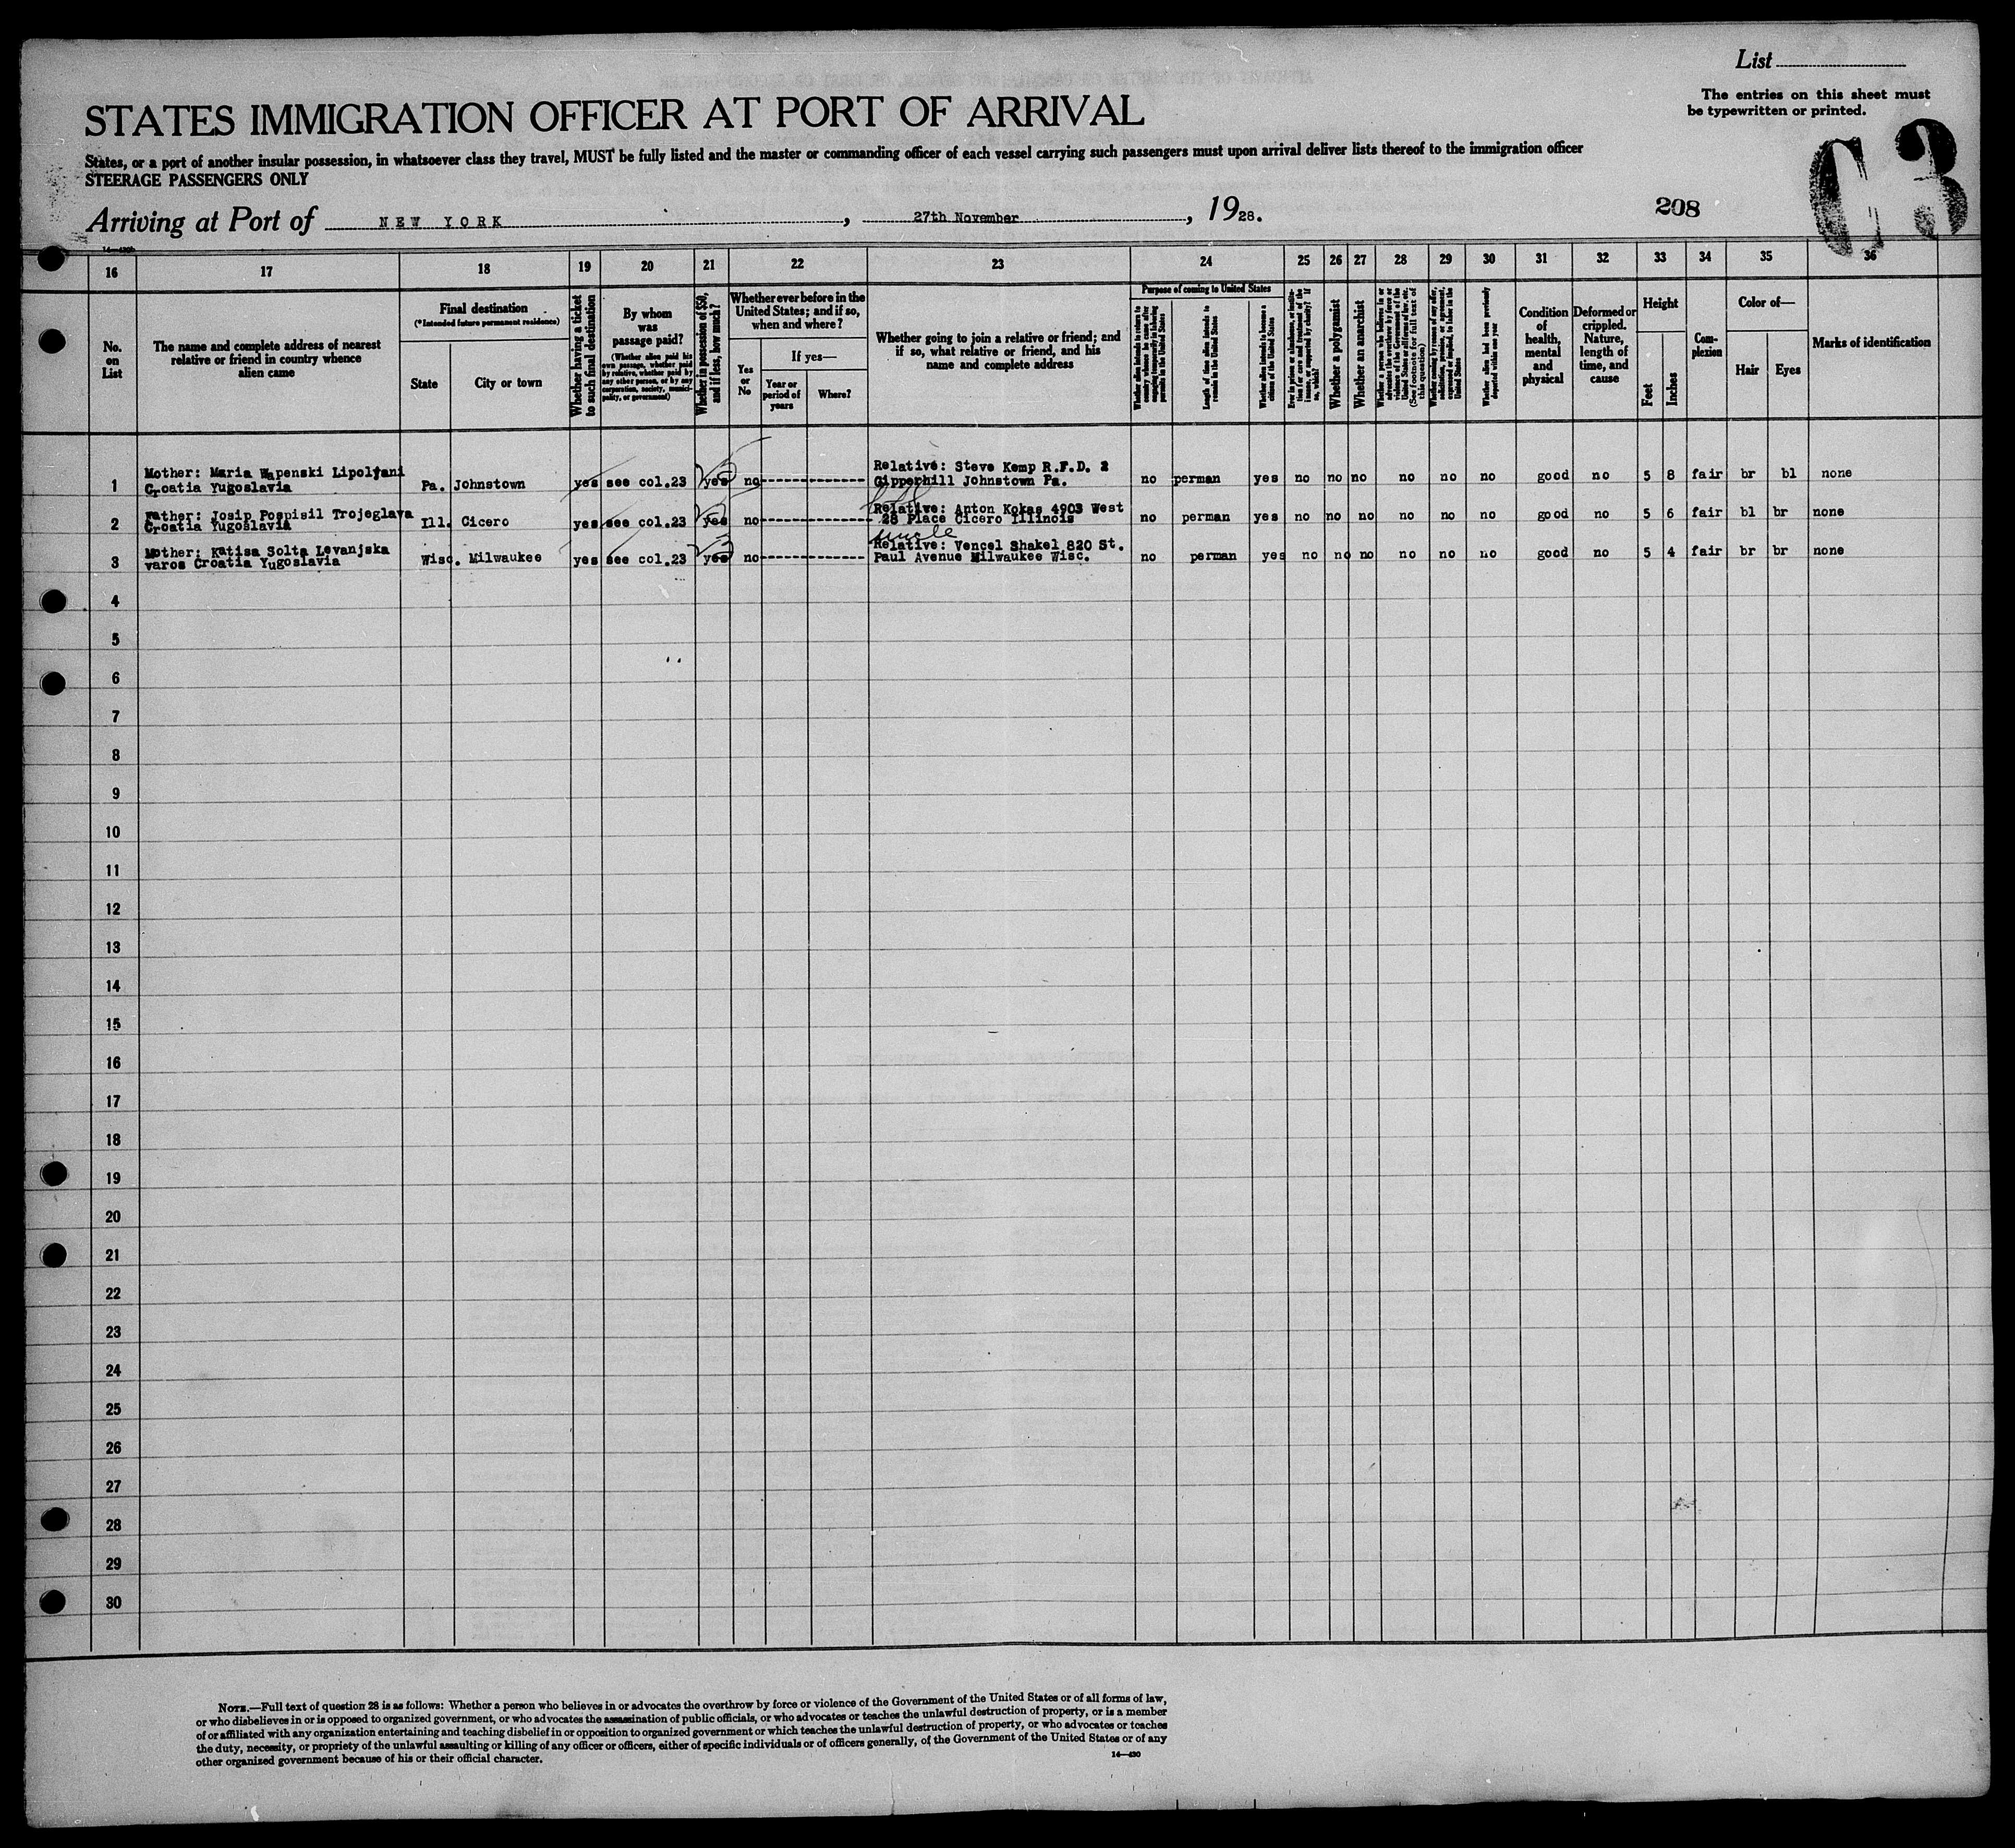 List
The entries on this sheet must
be typewritten or printed.
STATES IMMIGRATION OFFICER AT PORT OF ARRIVAL
States, or a port of another insular possession, in whatsoever class they travel, MUST be fully listed and the master or commanding officer of each vessel carrying such passengers must upon arrival deliver lists thereof to the immigration officer
STEERAGE PASSENGERS ONLY
C 3
Arriving at Port of NEW YORK, 27th November, 1928.
208
16 17 18 19 20 21 22 23 24 25 26 27 28 29 30 31 32 33 34 35 36
No.
on
List
The name and complete address of nearest
relative or friend in country whence
alien came
Final destination
(*Intended future permanent residence)
State
City or town
Whether having a ticket
to such final destination
By whom
was
passage paid?
(Whether alien paid his
own passage, whether paid
by relative, whether paid by
any other person, or by any
corporation, society, munici-
pality, or government)
Whether in possession of $50,
and if less, how much?
Whether ever before in the
United States; and if so,
when and where?
Yes
or
No
If yes—
Year or
period of
years
Where?
Whether going to join a relative or friend; and
if so, what relative or friend, and his
name and complete address
Purpose of coming to United States
Whether alien intends to return to
country whence he came after
engaging temporarily in laboring
pursuits in United States
Length of time alien intends to
remain in the United States
Whether alien intends to become a
citizen of the United States
Ever in prison or almshouse, or institu-
tion for care and treatment of the
insane, or supported by charity? If
so, which?
Whether a polygamist
Whether an anarchist
Whether a person who believes in or
advocates the overthrow by force or
violence of the Government of the
United States or all forms of law, etc.
(See footnote for full text of
this question)
Whether coming by reason of any offer,
solicitation, promise, or agreement,
expressed or implied, to labor in the
United States
Whether alien had been previously
deported within one year
Condition
of
health,
mental
and
physical
Deformed or
crippled.
Nature,
length of
time, and
cause
Height
Feet
Inches
Com-
plexion
Color of—
Hair
Eyes
Marks of identification
Mother: Maria Wapenski Lipolyani Relative: Steve Kemp R.F.D. 2
1 Croatia Yugoslavia Pa. Johnstown yes see col.23 yes no Gipperhill Johnstown Pa. no perman yes no no no no no no good no 5 8 fair br bl none
Father: Josip Pospisil Trojeglava Relative: Anton Kokas 4903 West
2 Croatia Yugoslavia Ill. Cicero yes see col.23 yes no 28 Place Cicero Illinois no perman yes no no no no no no good no 5 6 fair bl br none
uncle
Mother: Katisa Solta Levanjska Relative: Vencel Shakel 820 St.
3 varos Croatia Yugoslavia Wisc. Milwaukee yes see col.23 yes no Paul Avenue Milwaukee Wisc. no perman yes no no no no no no good no 5 4 fair br br none
4
5
6
7
8
9
10
11
12
13
14
15
16
17
18
19
20
21
22
23
24
25
26
27
28
29
30
NOTE.—Full text of question 28 is as follows: Whether a person who believes in or advocates the overthrow by force or violence of the Government of the United States or of all forms of law,
or who disbelieves in or is opposed to organized government, or who advocates the assassination of public officials, or who advocates or teaches the unlawful destruction of property, or is a member
of or affiliated with any organization entertaining and teaching disbelief in or opposition to organized government or which teaches the unlawful destruction of property, or who advocates or teaches
the duty, necessity, or propriety of the unlawful assaulting or killing of any officer or officers, either of specific individuals or of officers generally, of the Government of the United States or of any
other organized government because of his or their official character.
14—430